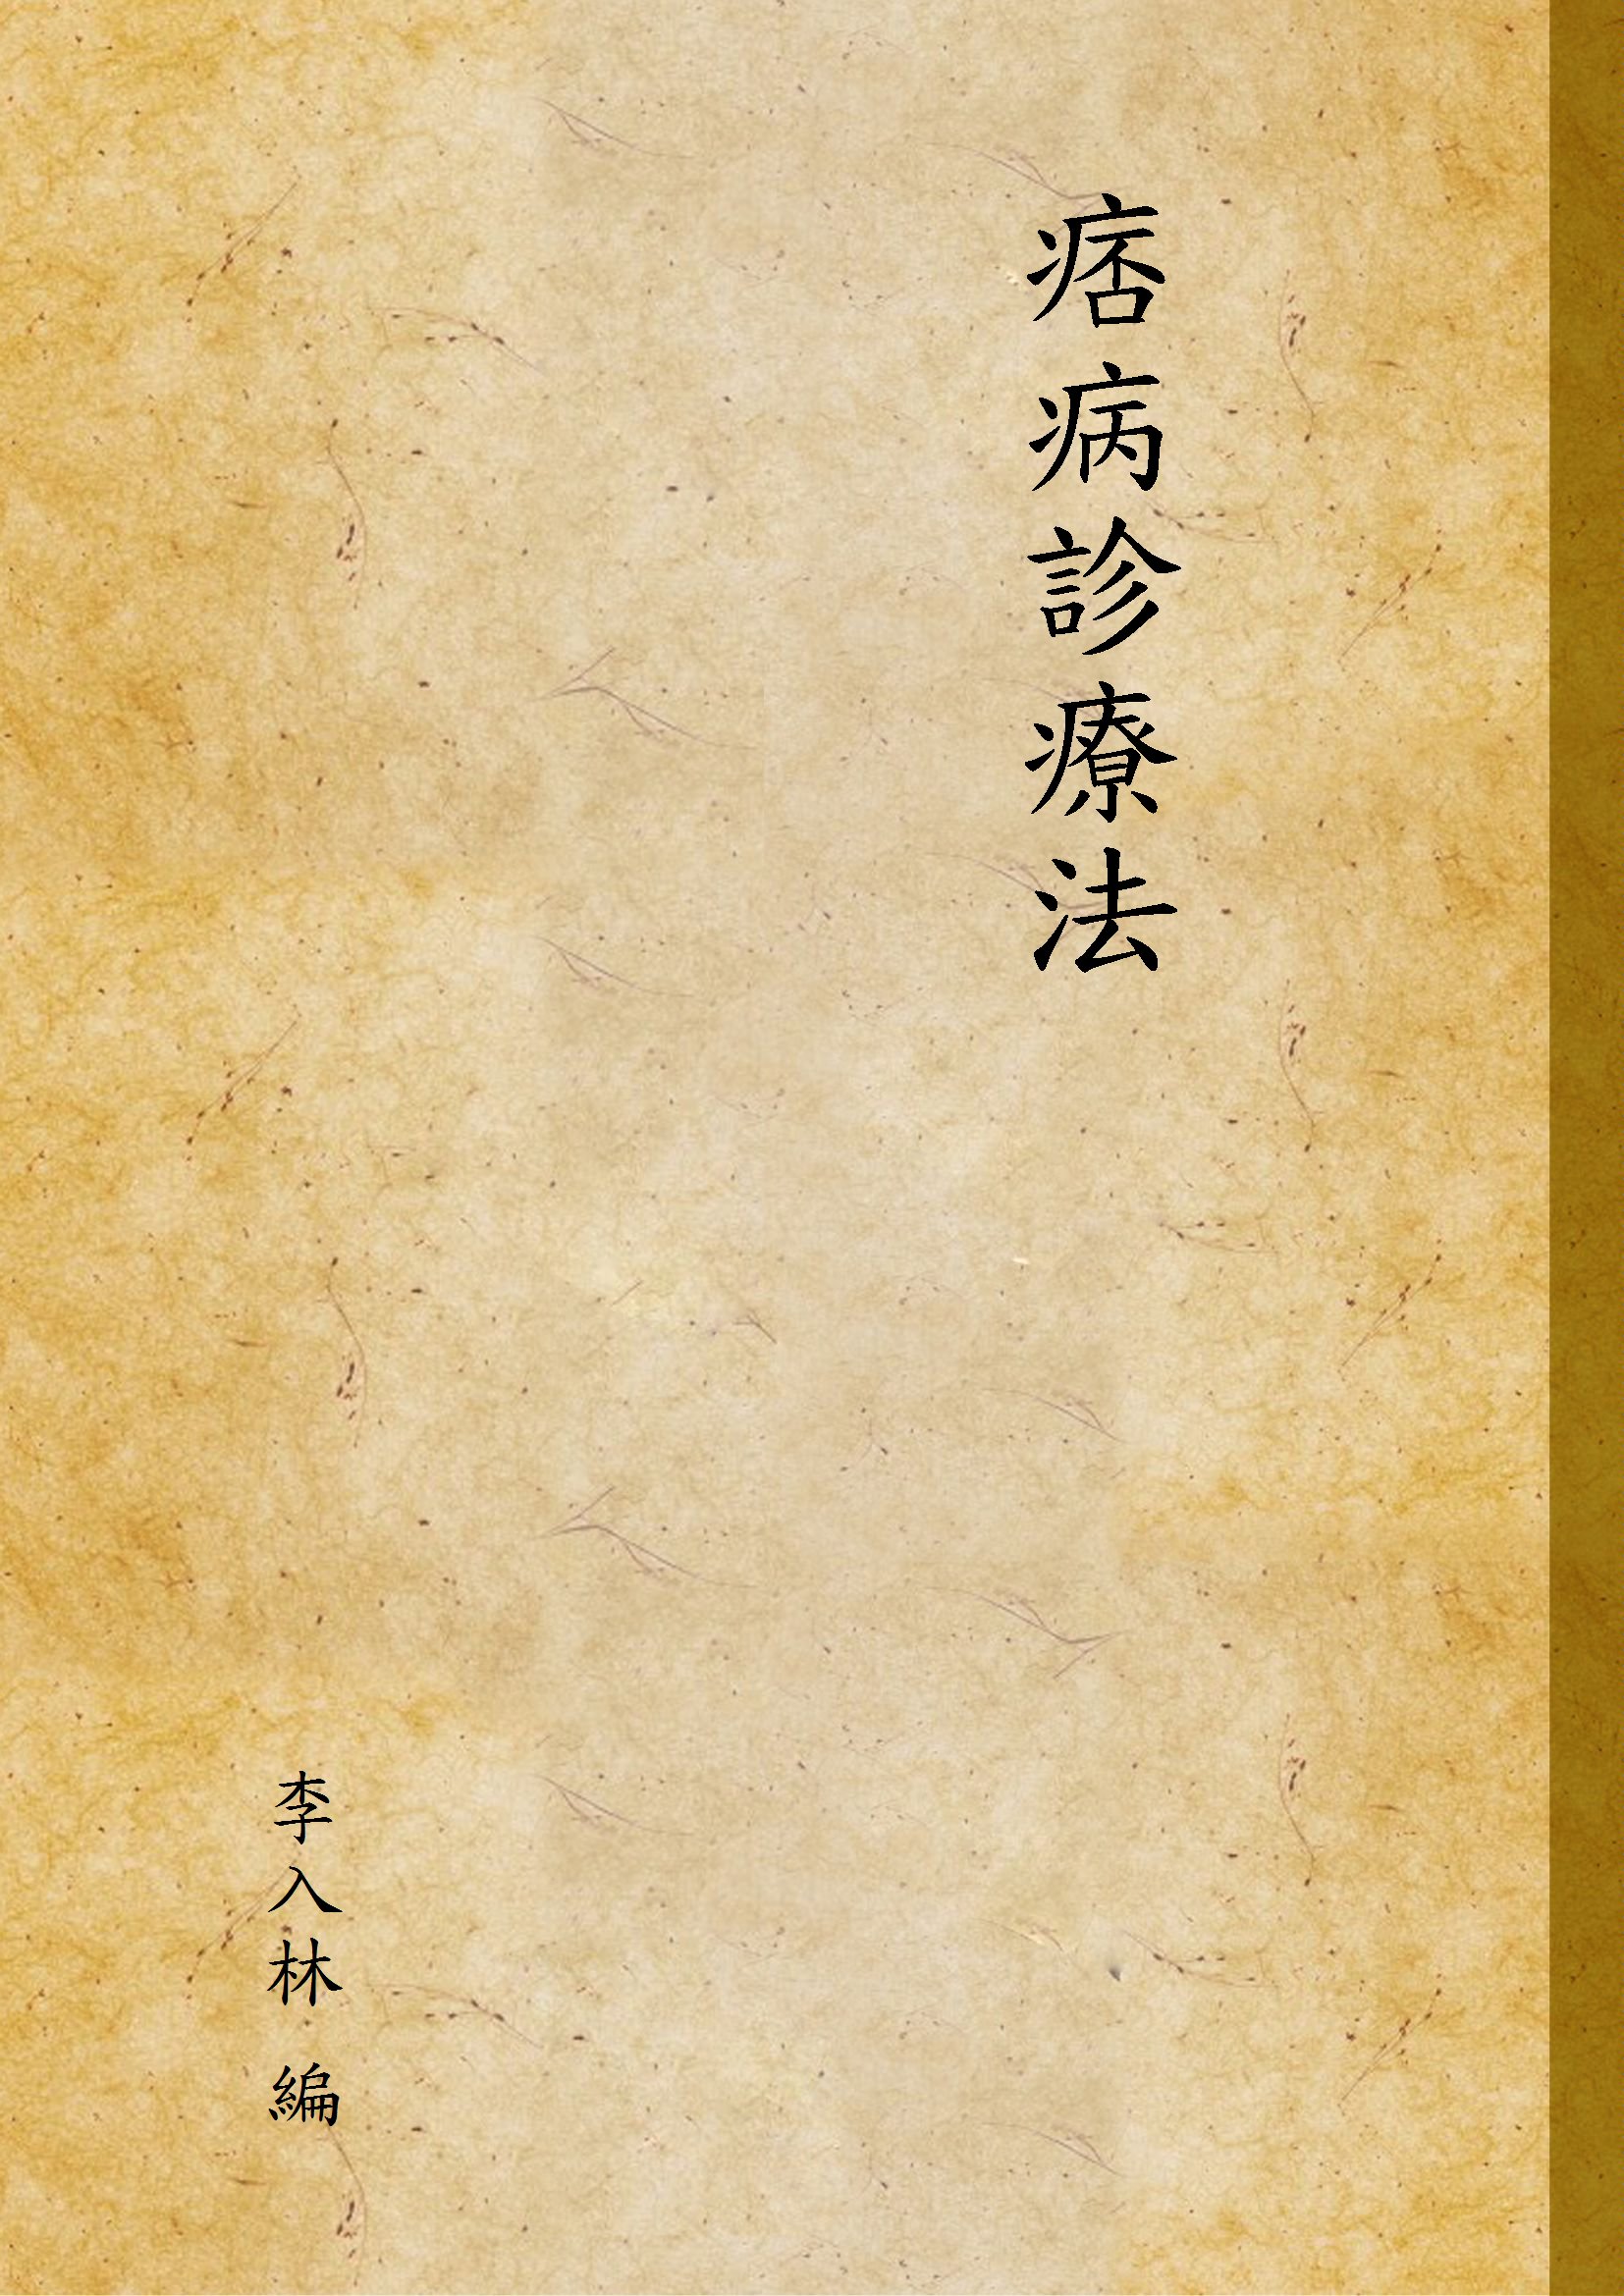 痞病診療法
李入林 編